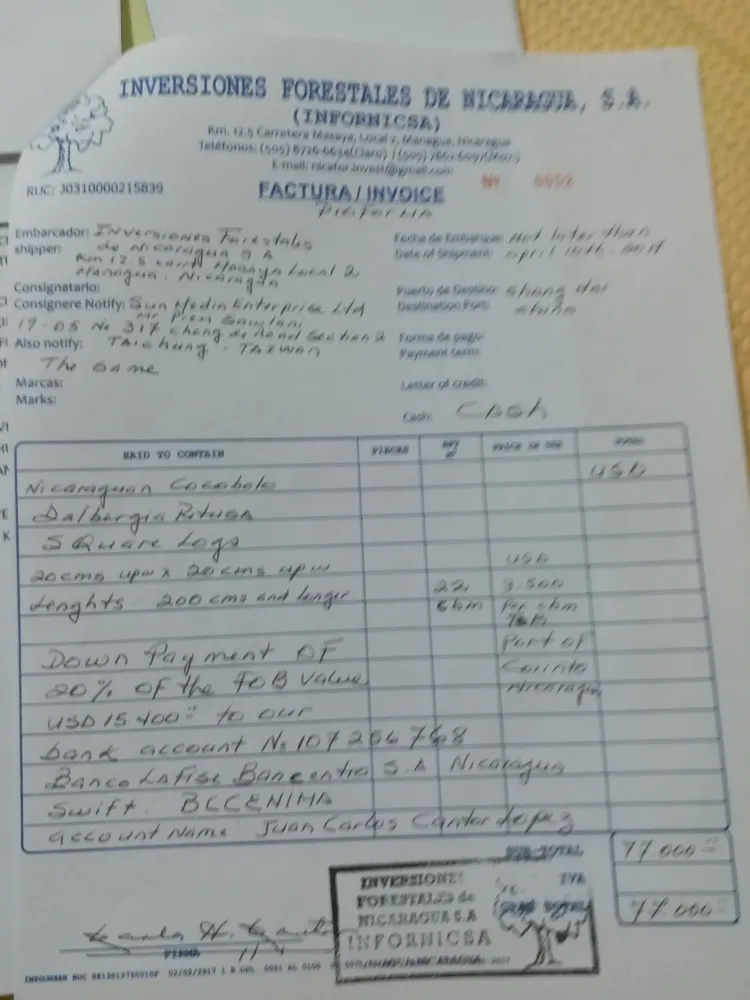 INVERSIONES FORESTALES DE NICARAGUA, S.A.
(INFORNICSA)
Km. 12.5 Carretera Masaya, Local 2, Managua, Nicaragua
Teléfonos: (505) 8726-6634(Claro)
E-mail: nicafor.invest@gmail.com
RUC: J0310000215839
FACTURA / INVOICE
Nº 0092
Proforma
Embarcador: Inversiones Forestales
shipper: de Nicaragua S A
Km 12.5 carret Masaya Local 2
Managua. Nicaragua
Fecha de Embarque: Not later than
Date of Shipment: april 15th.
Consignatario:
Consignere Notify: Sun Media Enterprise Ltd
Mr Prem
17-05 No 317 chong de Road Section 2
Also notify: TAichung - TAIWAN
The same
Puerto de Destino: Shang hai
Destination Port: china
Forma de pago:
Payment term:
Marcas:
Marks:
Letter of credit:
Cash: CASh
SAID TO CONTAIN PIECES PRICE IN USD
USD
Nicaraguan Cocobolo
Dalbergia Retusa
SQuare Logs
20cms up w x 20 cms up w USD
Lenghts 200 cms and longer 22 3.500
cbm Per cbm
FOB
Down Payment OF Port of
20% OF the FOB Value Corinto
Nicaragua
USD 15.400 to our
bank account No 107266768
Banco Lafise Bancentro S.A Nicaragua
Swift BCCENIMA
account Name Juan Carlos Cantor Lopez
SUB-TOTAL 77.000
IVA
GRAN TOTAL 77.000
FIRMA
INVERSIONES
FORESTALES de
NICARAGUA S.A
INFORNICSA